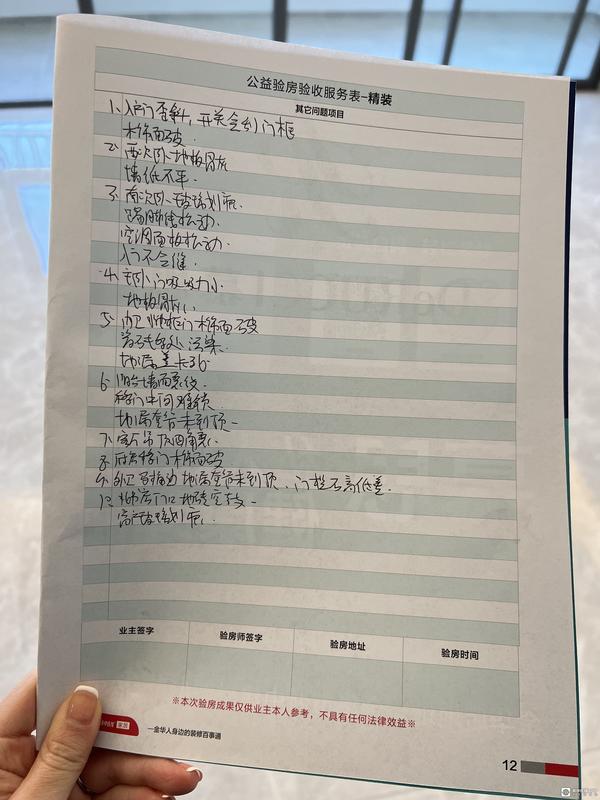 公益验房验收服务表-精装
其它问题项目
1、入户门歪斜，开关会刮门框
木饰面破
2、西次卧 地板
墙纸不平
3、南次卧 玻璃划痕
踢脚线松动
空调面板松动
入门不合缝
4、主卧门吸吸力小
地板
5、内卫 门木饰面破
污染
地漏
6、阳台墙面裂纹
移门中间难锁
套管未到顶
7、客厅吊顶四角裂
8、厨房移门木饰面破
9、外卫 套管未到顶、门槛石高低差
10、厨房门口地砖空鼓
窗户玻璃划痕
业主签字
验房师签字
验房地址
验房时间
※本次验房成果仅供业主本人参考，不具有任何法律效益※
家居
—金华人身边的装修百事通
12